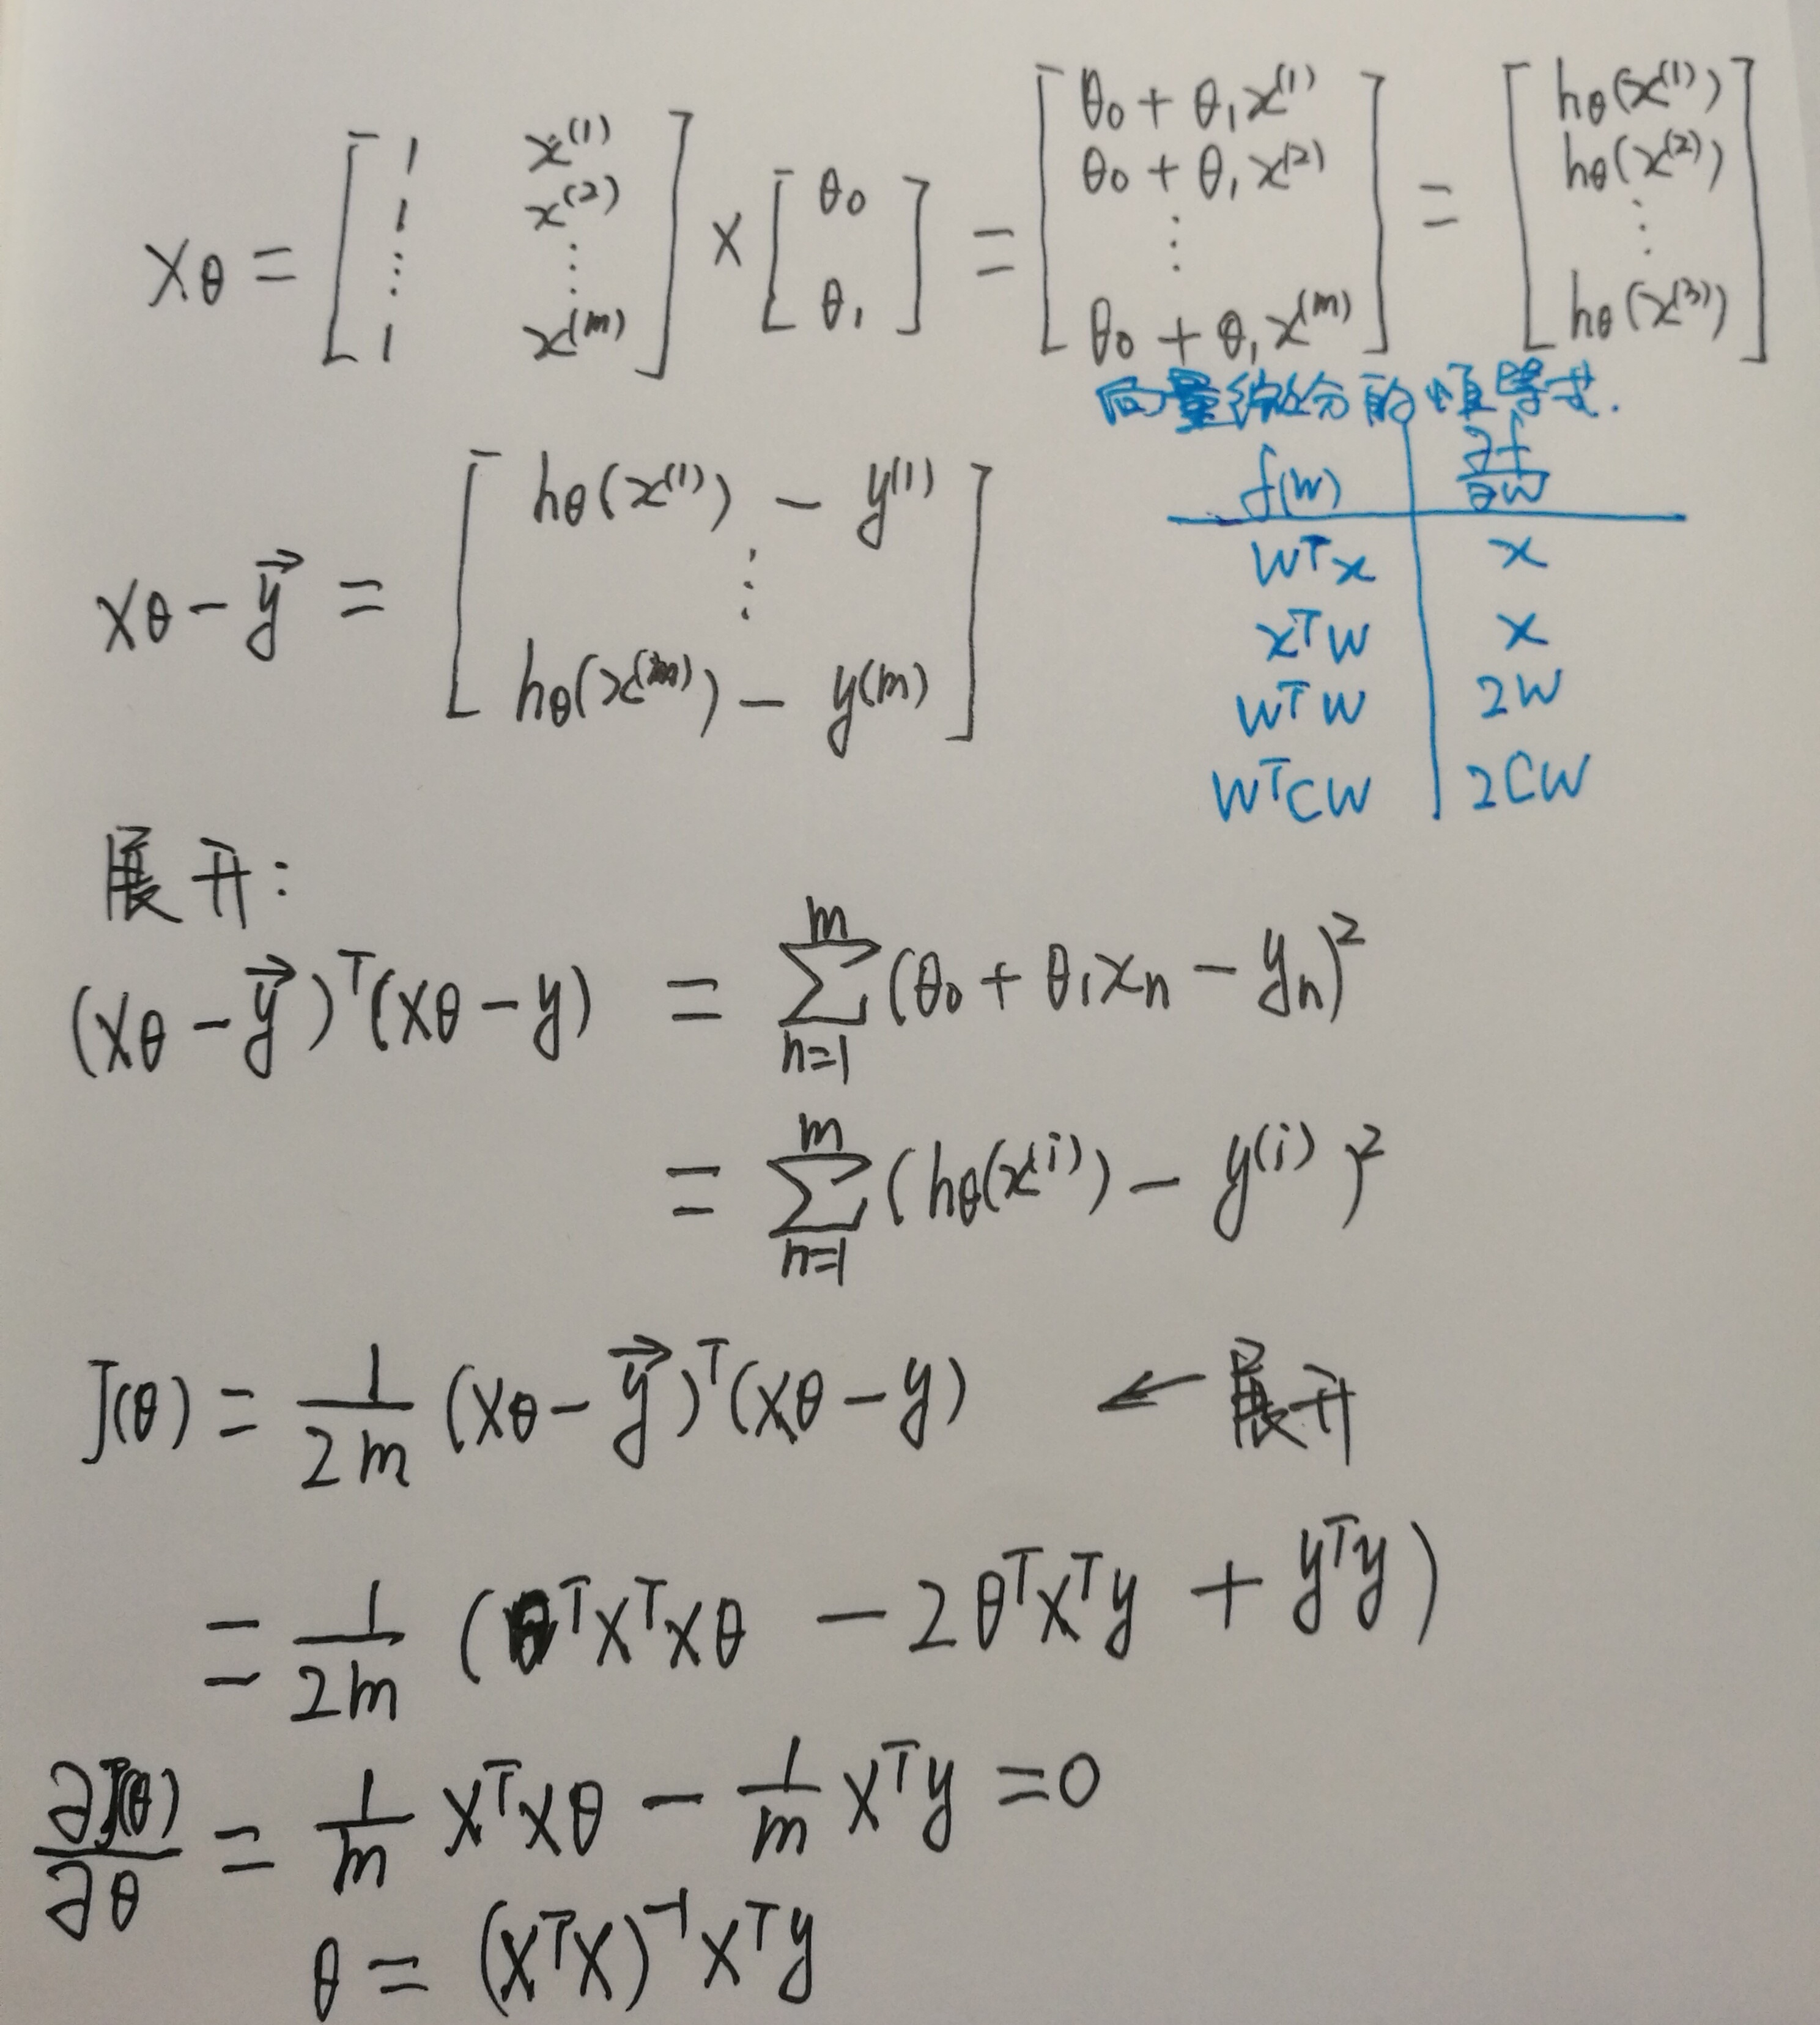 Xθ = [ 1 x^(1) ; 1 x^(2) ; ⋮ ⋮ ; 1 x^(m) ] × [ θ₀ ; θ₁ ] = [ θ₀ + θ₁x^(1) ; θ₀ + θ₁x^(2) ; ⋮ ; θ₀ + θ₁x^(m) ] = [ hθ(x^(1)) ; hθ(x^(2)) ; ⋮ ; hθ(x^(3)) ]
向量微分的恒等式.
f(w) | ∂f/∂w
wᵀx | x
xᵀw | x
wᵀw | 2w
wᵀCw | 2Cw
Xθ − y⃗ = [ hθ(x^(1)) − y^(1) ; ⋮ ; hθ(x^(m)) − y^(m) ]
展开:
(Xθ − y⃗)ᵀ(Xθ − y) = ∑_{n=1}^{m} (θ₀ + θ₁xₙ − yₙ)²
= ∑_{n=1}^{m} (hθ(x^(i)) − y^(i))²
J(θ) = 1/2m (Xθ − y⃗)ᵀ(Xθ − y) ← 展开
= 1/2m (θᵀXᵀXθ − 2θᵀXᵀy + yᵀy)
∂J(θ)/∂θ = 1/m XᵀXθ − 1/m Xᵀy = 0
θ = (XᵀX)⁻¹Xᵀy